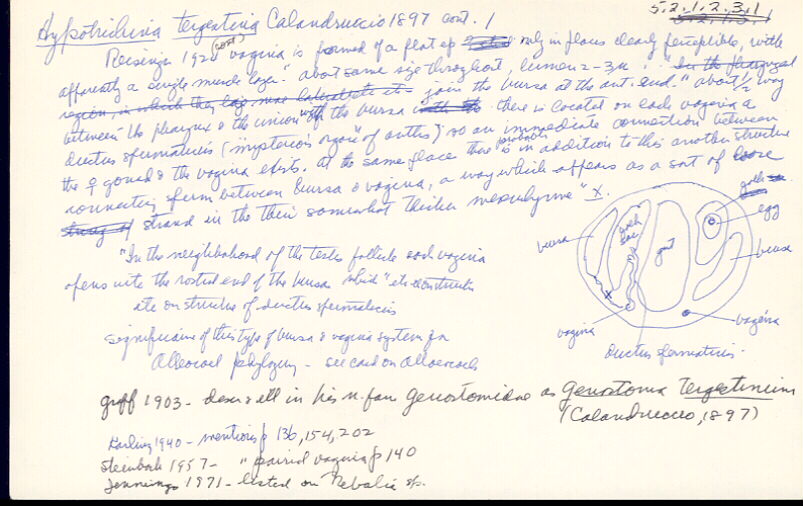 5.2.1.2.3.1
Hypotrichina tergestina Calandruccio 1897 cont. 1
Reisinger 1924 (cont) vagina is formed of a flat ep only in places clearly perceptible, with
apparently a single muscle layer." about same size throughout, lumen 2-3µ. "In the pharyngeal
region, in which they lie more laterally etc join the bursa at the ant. end." about 1/2 way
between the pharynx & the union with the bursa there is located on each vagina a
ductus spermaticus (mysterious organ of auths) so an immediate connection between
the ♀ gonad & the vagina exists. At the same place there is probably in addition to this another structure
connecting sperm between bursa & vagina, a way which appears as a sort of loose
strand in the there somewhat thicker mesenchyme" X.
"In the neighborhood of the testes follicle each vagina
opens into the rostral end of the bursa which" etc construction
etc on structure of ductus spermaticus
significance of this type of bursa & vagina system for
Alloeocoel phylogeny - see card on Alloeocoels
bursa
gut
egg
bursa
vagina
vagina
ductus spermaticus
Graff 1903 - descr & ill in his n. fam Genostomidae as Genostoma tergestinum
(Calandruccio, 1897)
Karling 1940 - mentions p 136, 154, 202
Steinböck 1957 - " paired vagina p 140
Jennings 1971 - listed on Nebalia sp.